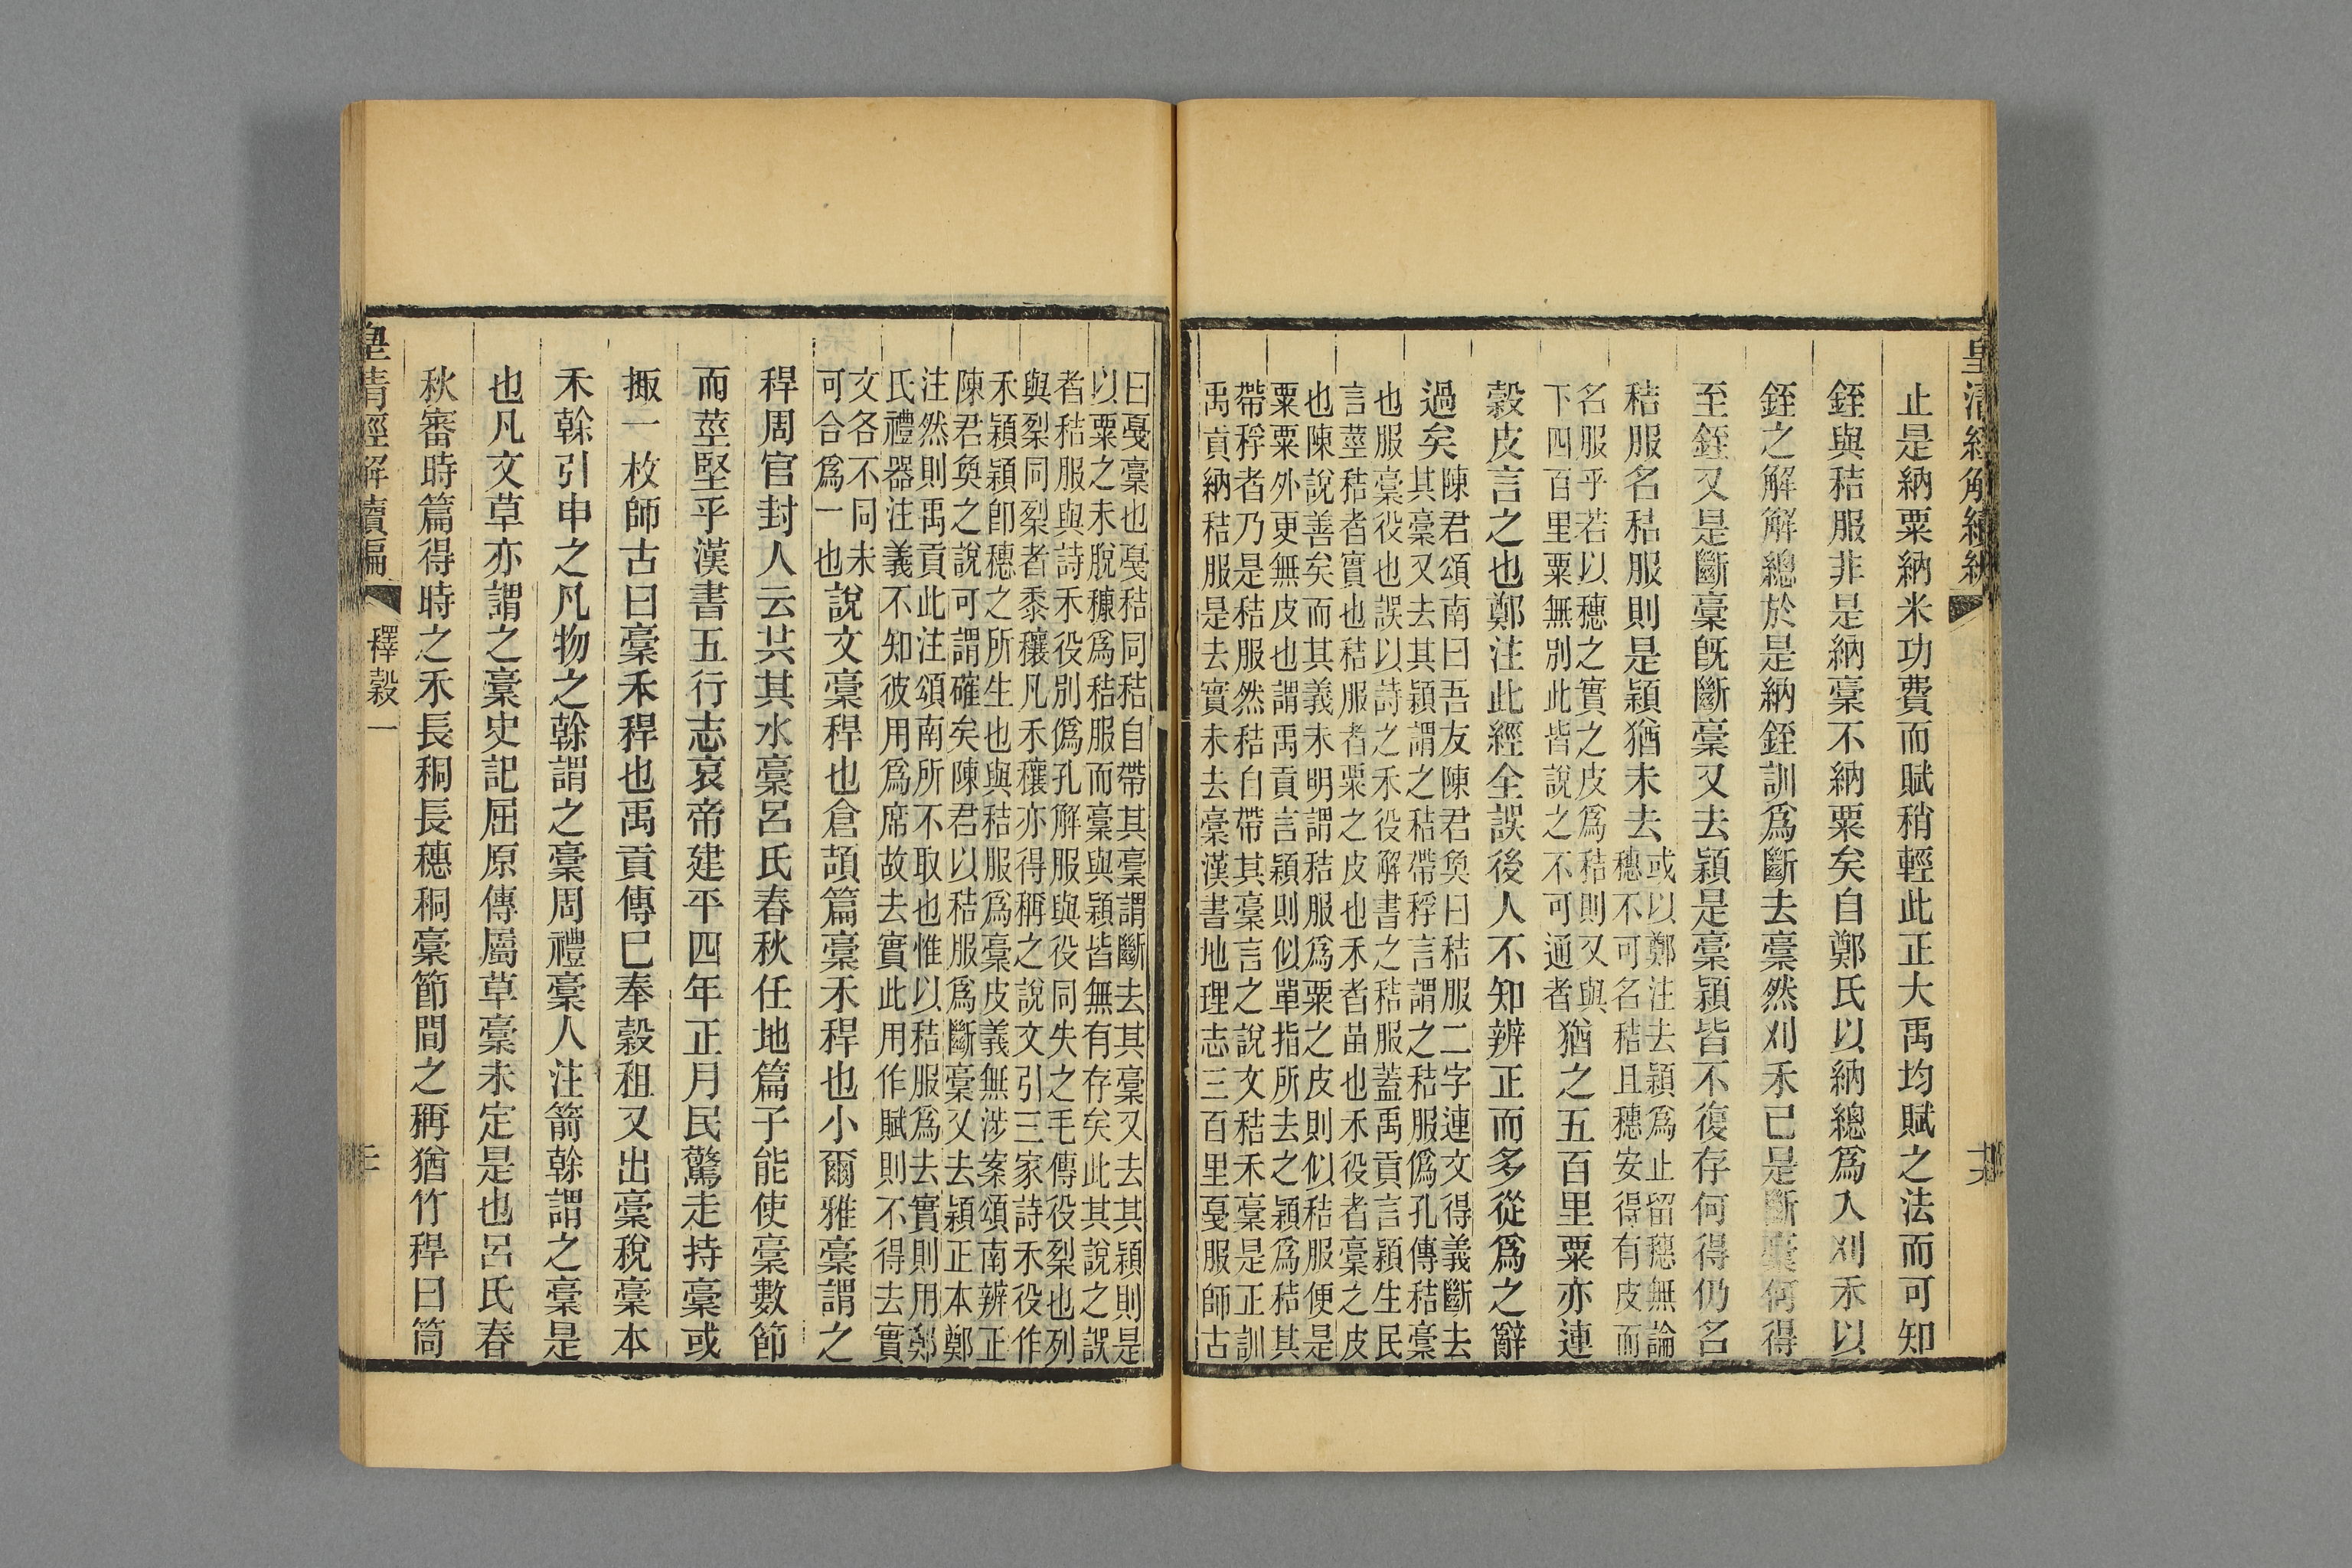 皇清經解續編
止是納粟納米功費而賦稍輕此正大禹均賦之法而可知
銍與秸服非是納稾不納粟矣自鄭氏以納總爲入刈禾以
銍之解解總於是納銍訓爲斷去稾然刈禾已是斷稾何得
至銍又是斷稾旣斷稾又去穎是稾穎皆不復存何得仍名
秸服名秸服則是穎猶未去
或以鄭注去穎爲止留穗無論
穗不可名秸且穗安得有皮而
名服乎若以穗之實之皮爲秸則又與
下四百里粟無別此皆說之不可通者
猶之五百里粟亦連
穀皮言之也鄭注此經全誤後人不知辨正而多從爲之辭
過矣
陳君頌南曰吾友陳君奐曰秸服二字連文得義斷去
其稾又去其穎謂之秸帶稃言謂之秸服僞孔傳秸稾
也服稾役也誤以詩之禾役解書之秸服蓋禹貢言穎生民
言莖秸者實也秸服者粟之皮也禾者苗也禾役者稾之皮
也陳說善矣而其義未明謂秸服爲粟之皮則似秸服便是
粟粟外更無皮也謂禹貢言穎則似單指所去之穎爲秸其
帶稃者乃是秸服然秸自帶其稾言之說文秸禾稾是正訓
禹貢納秸服是去實未去稾漢書地理志三百里戛服師古
曰戛稾也戛秸同秸自帶其稾謂斷去其稾又去其穎則是
以粟之未脫穅爲秸服而稾與穎皆無有存矣此其說之誤
者秸服與詩禾役別僞孔解服與役同失之毛傳役梨也列
與梨同梨者黍穰凡禾穰亦得稱之說文引三家詩禾役作
禾穎穎卽穗之所生也與秸服爲稾皮義無涉案頌南辨正
陳君奐之說可謂確矣陳君以秸服爲斷稾又去穎正本鄭
注然則禹貢此注頌南所不取也惟以秸服爲去實則用鄭
氏禮器注義不知彼用爲席故去實此用作賦則不得去實
文各不同未
可合爲一也
說文稾稈也倉頡篇稾禾稈也小爾雅稾謂之
稈周官封人云共其水稾呂氏春秋任地篇子能使稾數節
而莖堅乎漢書五行志哀帝建平四年正月民驚走持稾或
掫一枚師古曰稾禾稈也禹貢傳已奉穀租又出稾稅稾本
禾榦引申之凡物之榦謂之稾周禮稾人注箭榦謂之稾是
也凡文草亦謂之稾史記屈原傳屬草稾未定是也呂氏春
秋審時篇得時之禾長秱長穗秱稾節間之稱猶竹稈曰筒
皇清經解續編
釋穀一